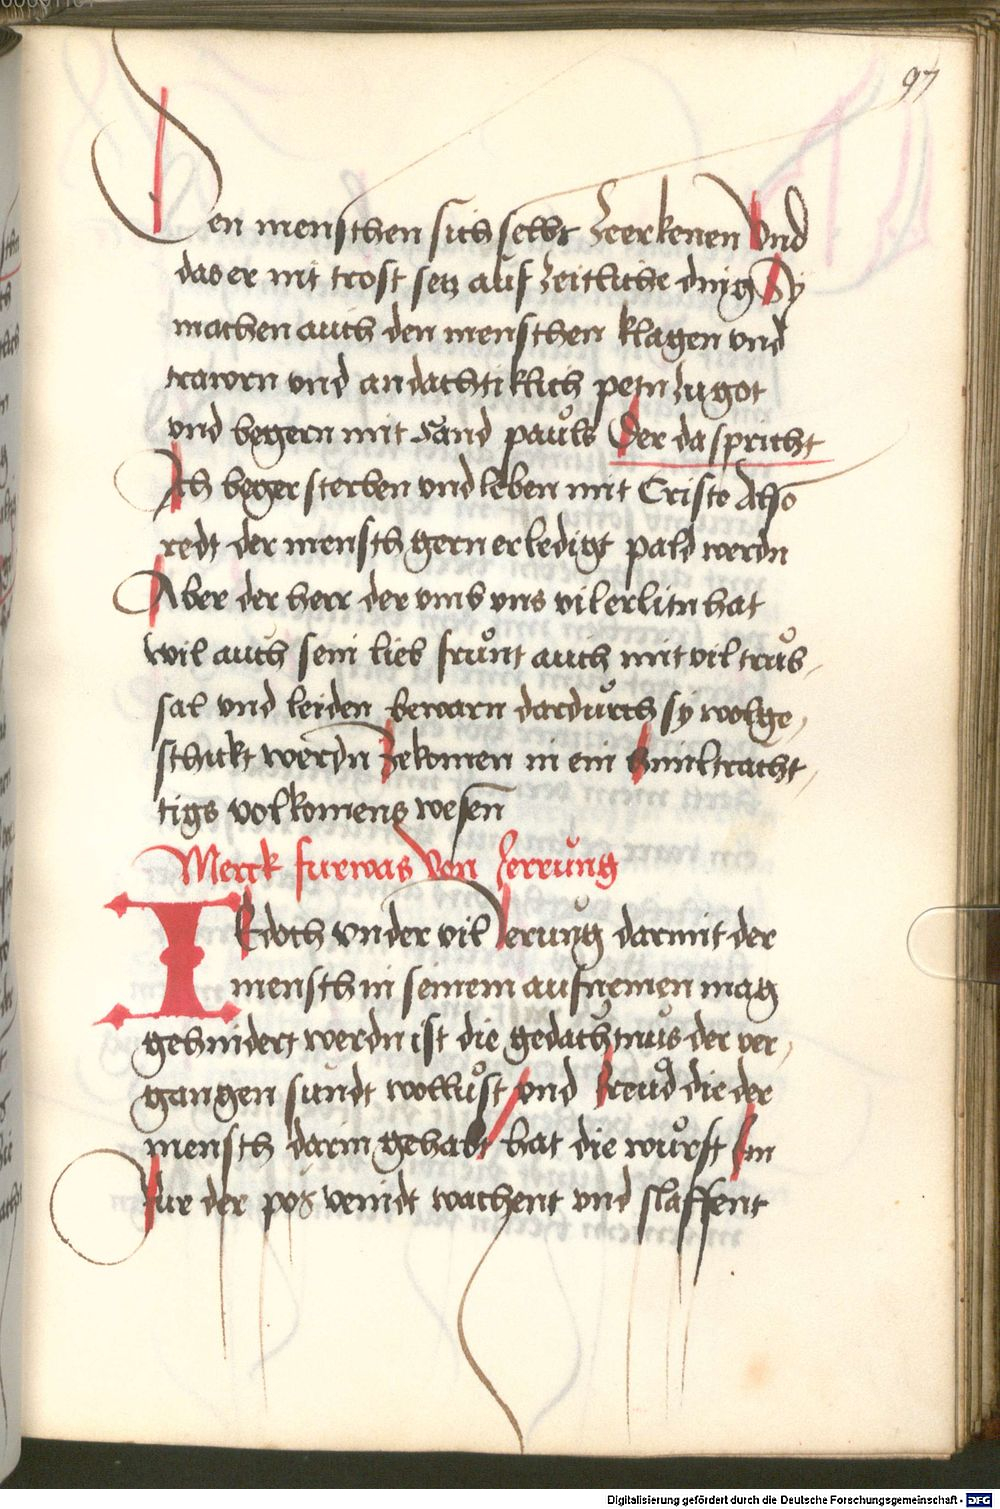 97
Den menschen sich selbr Zeerkenen Vnd
das er nit trost setz auf zeitliche ding Sy
machen auch den menschen klagen vnd
trawrn vnd andachtiklich petn zu got
vnd begern mit Sand pauls Der da spricht
Ich beger sterben vnd leben mit Cristo Also
redt der mensch gern erledigt pald werdn
Aber der herr der vmb vns vil erlitn hat
wil auch sein lieb frunt auch mit vil trub-
sal vnd leiden bewarn dardurch sy wolge-
schickt werdn Zekomen in ein Himltracht-
tigs volkomens wesen
Merck furwas Von Zerrung
IEdoch vnder vil Zerung darmit der
mensch in seinem aufnemen mag
gehindert werdn ist die gedachtnus der ver-
gangen sundt wollust vnd Freud die der
mensch darin gehabt hat die wurft Im
Fur der pos veindt wachent vnd slaffent
Digitalisierung gefördert durch die Deutsche Forschungsgemeinschaft - DFG